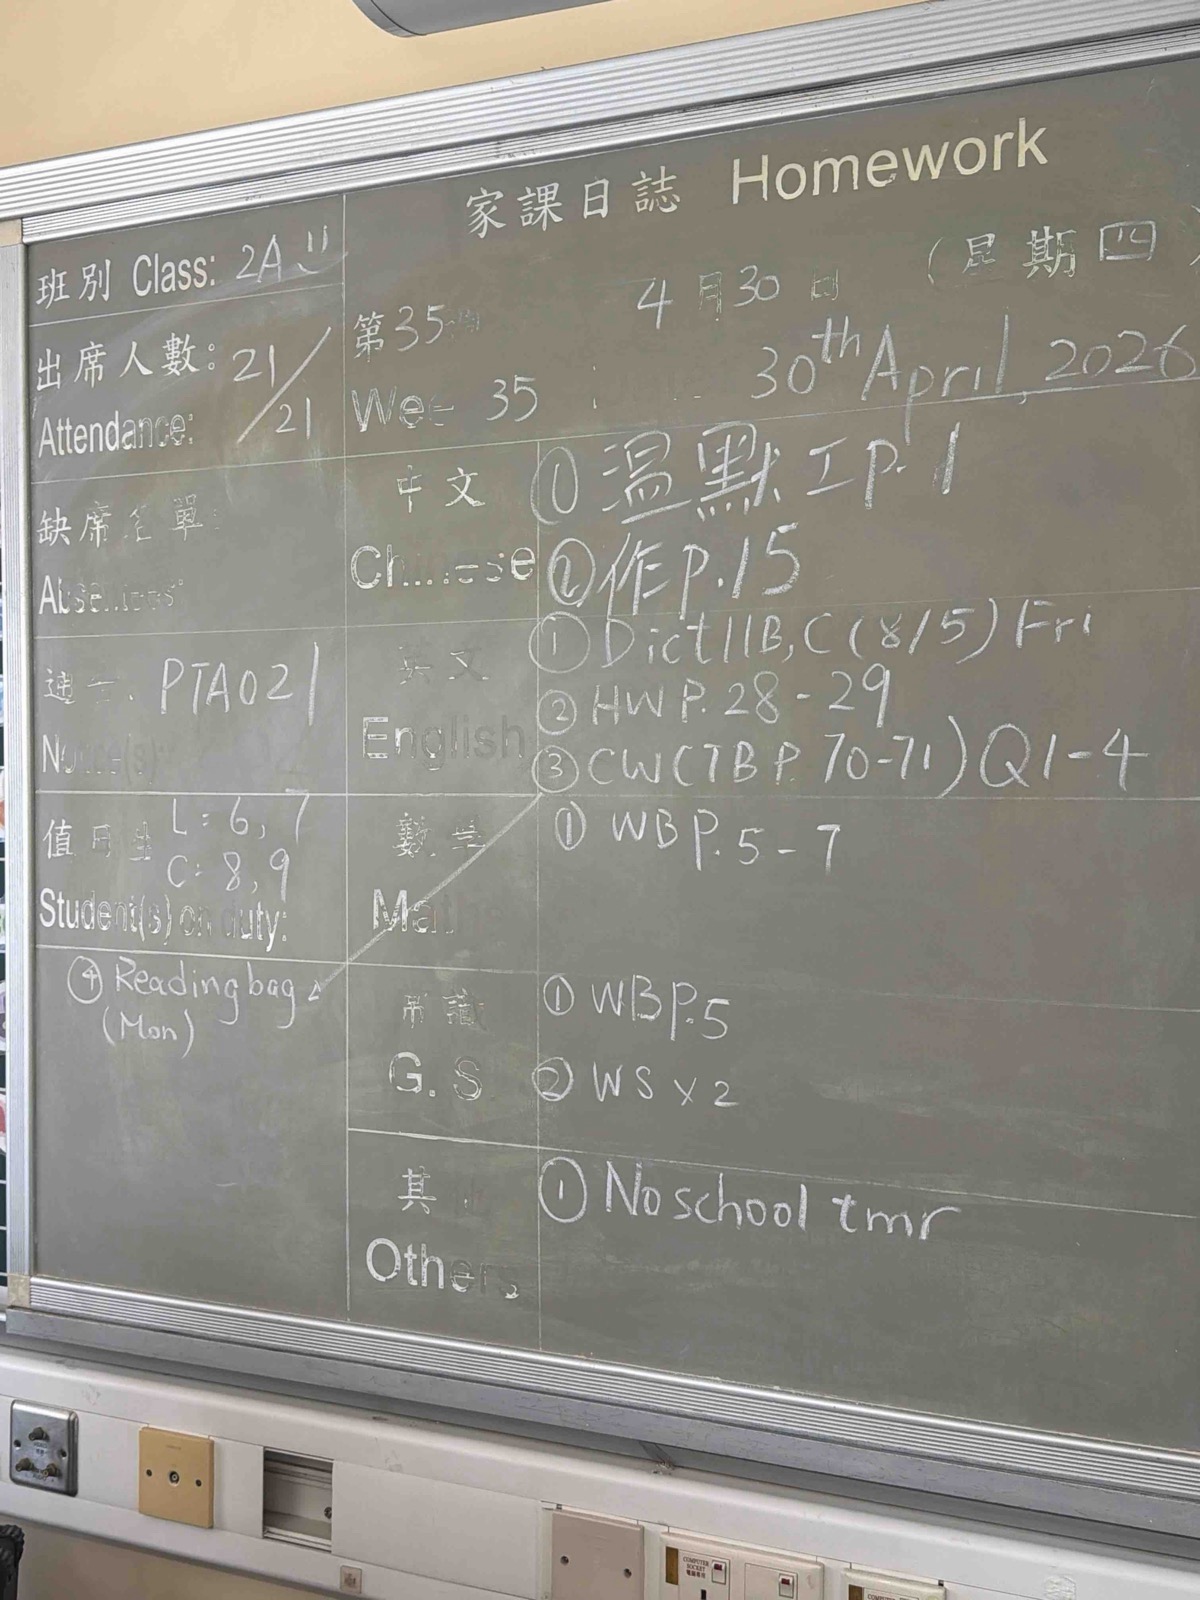 家課日誌 Homework
班別 Class: 2A
出席人數: 21/21
Attendance:
缺席名單:
Absentees:
通告: PTA021
Notice(s):
值日生 L: 6, 7
C: 8, 9
Student(s) on duty:
④ Reading bag
(Mon)
(星期四)
第35週 4月30日
Week 35 30th April, 2026
中文 ① 溫默工P.1
Chinese ② 作P.15
英文 ① Dict11B,C (8/5) Fri
② HW P.28-29
English ③ CW(TB P.70-71) Q1-4
數學 ① WB P.5-7
Maths
常識 ① WB P.5
G.S. ② WS x 2
其他 ① No school tmr
Others
COMPUTER
SOCKET
電腦專用
COMPUTER